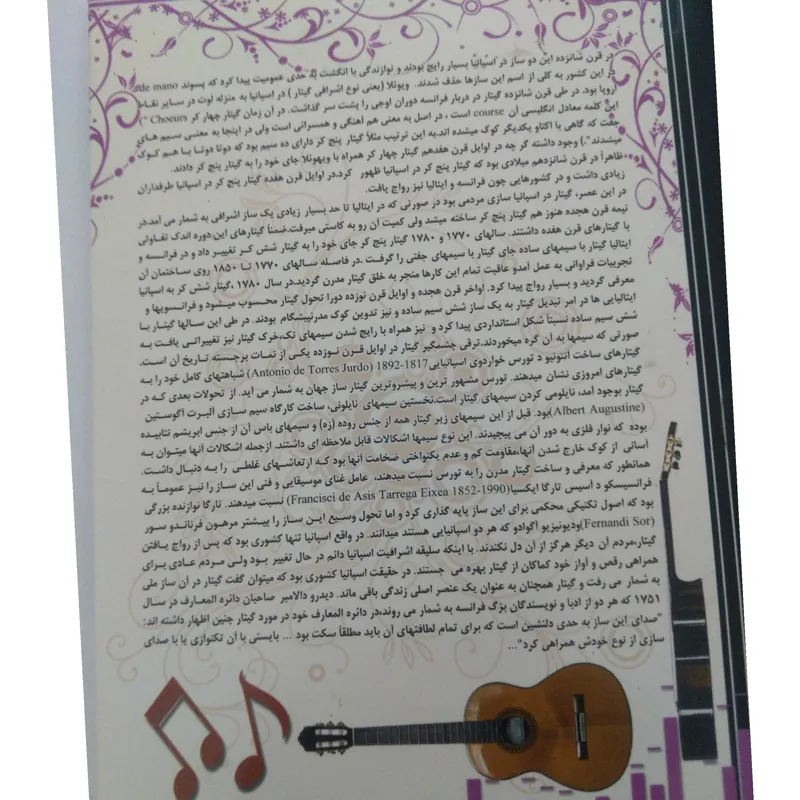 در قرن شانزده این دو ساز در اسپانیا بسیار رایج بودند و نوازندگی با انگشت به حدی عمومیت پیدا کرد که پسوند de mano
در این کشور به کلی از اسم این سازها حذف شدند. ویوئلا (یعنی نوع اشرافی گیتار ) در اسپانیا به منزله لوت در سایر نقاط
اروپا بود. در طی قرن شانزده گیتار در دربار فرانسه دوران اوجی را پشت سر گذاشت. در آن زمان گیتار چهار کر Choeurs ")
این کلمه معادل انگلیسی آن course است ، در اصل به معنی هم آهنگی و همسرانی است ولی در اینجا به معنی سیم های
جفت که گاهی با اکتاو یکدیگر کوک میشده اند.به این ترتیب مثلاً گیتار پنج کر دارای ده سیم بود که دوتا دوتا با هم کوک
میشدند".) وجود داشته گر چه در اوایل قرن هفدهم گیتار چهار کر همراه با ویهوئلا جای خود را به گیتار پنج کر دادند.
ظاهراً در قرن شانزدهم میلادی بود که گیتار پنج کر در اسپانیا ظهور کرد.در اوایل قرن هفده گیتار پنج کر در اسپانیا طرفداران
زیادی داشت و در کشورهایی چون فرانسه و ایتالیا نیز رواج یافت.
در این عصر، گیتار در اسپانیا سازی مردمی بود در صورتی که در ایتالیا تا حد بسیار زیادی یک ساز اشرافی به شمار می آمد.در
نیمه قرن هجده هنوز هم گیتار پنج کر ساخته میشد ولی کمیت آن رو به کاستی میرفت.ضمناً گیتارهای این دوره اندک تفاوتی
با گیتارهای قرن هفده داشتند. سالهای ۱۷۷۰ و ۱۷۸۰ گیتار پنج کر جای خود را به گیتار شش کر تغییر داد و در فرانسه و
ایتالیا گیتار با سیمهای ساده جای گیتار با سیمهای جفتی را گرفت .در فاصله سالهای ۱۷۷۰ تا ۱۸۵۰ روی ساختمان آن
تجربیات فراوانی به عمل آمدو عاقبت تمام این کارها منجر به خلق گیتار مدرن گردید.در سال ۱۷۸۰ ،گیتار شش کر به اسپانیا
معرفی گردید و بسیار رواج پیدا کرد. اواخر قرن هجده و اوایل قرن نوزده دورا تحول گیتار محسوب میشود و فرانسویها و
ایتالیایی ها در امر تبدیل گیتار به یک ساز شش سیم ساده و نیز تدوین کوک مدرنپیشگام بودند. در طی این سالها گیتار با
شش سیم ساده نسبتاً شکل استانداردی پیدا کرد و نیز همراه با رایج شدن سیمهای تک،خرک گیتار نیز تغییراتی یافت به
صورتی که سیمها به آن گره میخوردند.ترقی چشمگیر گیتار در اوایل قرن نوزده یکی از نمات برجسته تاریخ آن است.
گیتارهای ساخت آنتونیو د تورس خواردوی اسپانیایی1817-1892 (Antonio de Torres Jurdo) شباهتهای کامل خود را به
گیتارهای امروزی نشان میدهند. تورس مشهور ترین و پیشروترین گیتار ساز جهان به شمار می آید. از تحولات بعدی که در
گیتار بوجود آمد، نایلومی کردن سیمهای گیتار است.نخستین سیمهای نایلونی، ساخت کارگاه سیم سازی آلبرت آگوستین
(Albert Augustine)بود. قبل از این سیمهای زیر گیتار همه از جنس روده (زه) و سیمهای باس آن از جنس ابریشم تتابیده
بوده که نوار فلزی به دور آن می پیچیدند. این نوع سیمها اشکالات قابل ملاحظه ای داشتند. ازجمله اشکالات آنها میتوان به
آسانی از کوک خارج شدن آنها،مقاومت کم و عدم یکنواختی ضخامت آنها بود که ارتعاشهای غلطی را به دنبال داشت.
همانطور که معرفی و ساخت گیتار مدرن را به تورس نسبت میدهند، عامل غنای موسیقایی و فنی این ساز را نیز عموماً به
فرانسیسکو د آسیس تارگا ایکسیا(Francisci de Asis Tarrega Eixea 1852-1990) نسبت میدهند. تارگا نوازنده بزرگی
بود که اصول تکنیکی محکمی برای این ساز پایه گذاری کرد و اما تحول وسیع این ساز را بیشتر مرهون فرناندو سور
(Fernandi Sor)ودیونیزیو آگوادو که هر دو اسپانیایی هستند میدانند. در واقع اسپانیا تنها کشوری بود که پس از رواج یافتن
گیتار،مردم آن دیگر هرگز از آن دل نکندند. با اینکه سلیقه اشرافیت اسپانیا دائم در حال تغییر بود ولی مردم عادی برای
همراهی رقص و آواز خود کماکان از گیتار بهره می جستند. در حقیقت اسپانیا کشوری بود که میتوان گفت گیتار در آن ساز ملی
به شمار می رفت و گیتار همچنان به عنوان یک عنصر اصلی زندگی باقی ماند. دیدرو دالامبر صاحبان دائره المعارف در سال
۱۷۵۱ که هر دو از ادبا و نویسندگان بزگ فرانسه به شمار می روند،در دائره المعارف خود در مورد گیتار چنین اظهار داشته اند:
"صدای این ساز به حدی دلنشین است که برای تمام لطافتهای آن باید مطلقاً سکت بود ... بایستی با آن تکنوازی یا با صدای
سازی از نوع خودش همراهی کرد"...